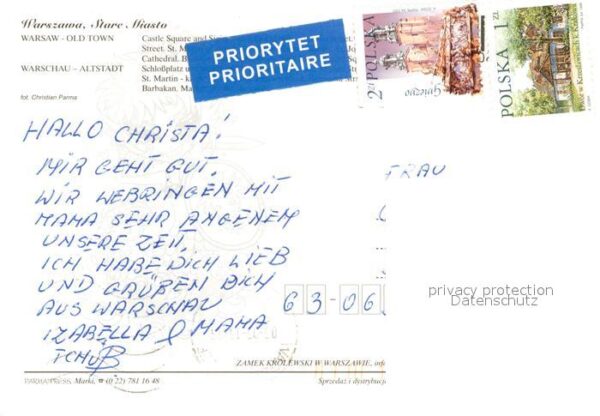 Warszawa, Stare Miasto
WARSAW - OLD TOWN
Castle Square and Sig
Street. St. M
Cathedral. B
WARSCHAU - ALTSTADT
Schloßplatz u
St. Martin - k
Barbakan. Ma
fot. Christian Parma
PRIORYTET
PRIORITAIRE
2 zł POLSKA
Gniezno
POLSKA 1 ZŁ
HALLO CHRISTA!
MIR GEHT GUT.
WIR WEBRINGEN MIT
MAMA SEHR ANGENEM
UNSERE ZEIT.
ICH HABE DICH LIEB
UND GRÜßEN DICH
AUS WARSCHAU
IZABELLA & MAMA
TCHUß
FRAU
63-06
privacy protection
Datenschutz
ZAMEK KRÓLEWSKI W WARSZAWIE, inf
PARMA PRESS, Marki, ☎ (0 22) 781 16 48
Sprzedaż i dystrybucja